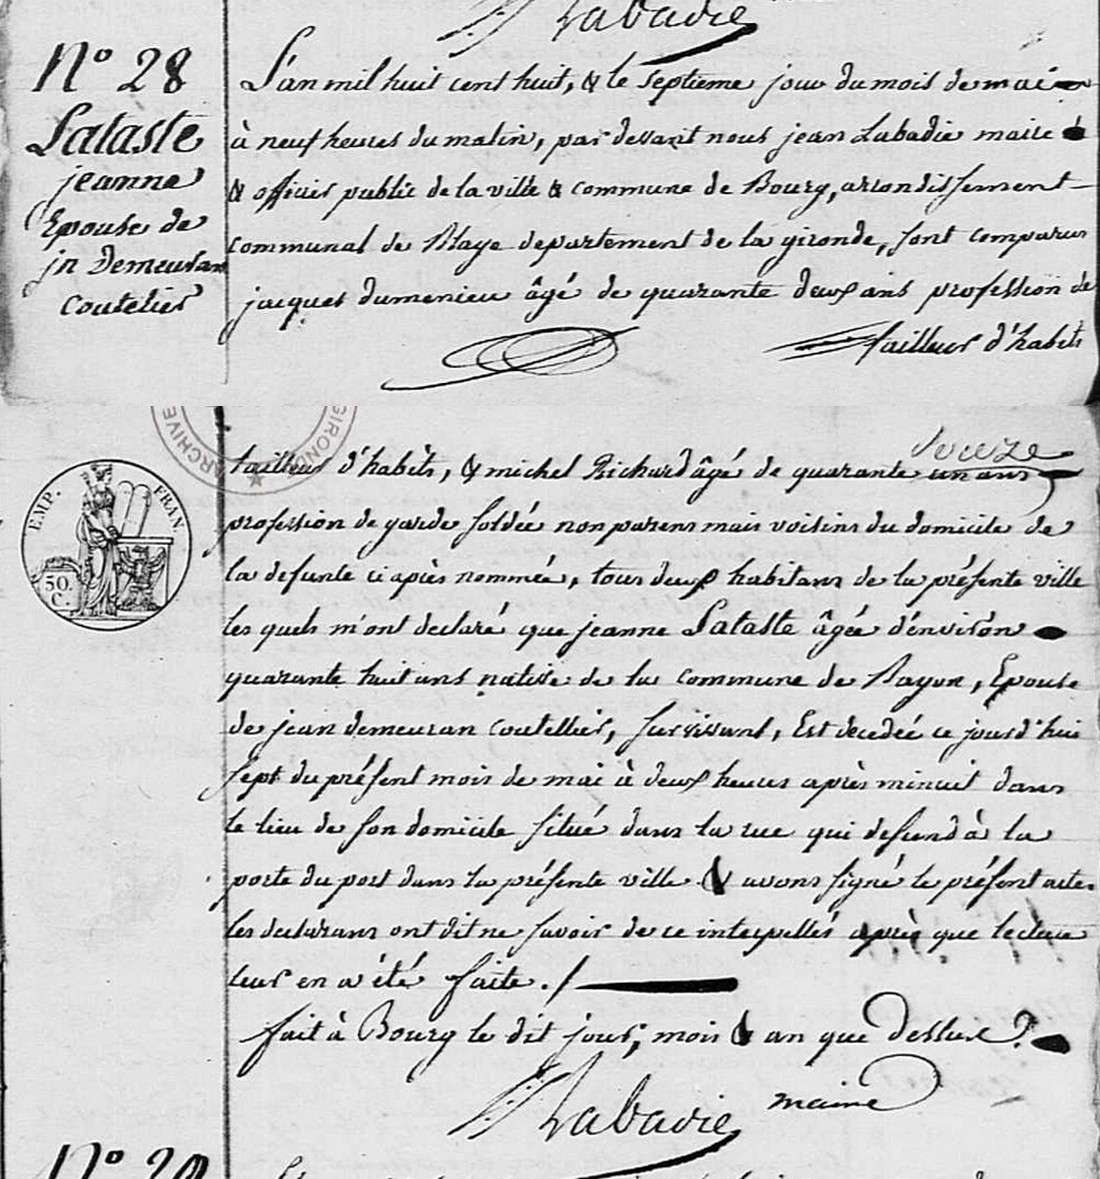 Labadie
N° 28
Lataste
jeanne
Epouse de
jn Demeuran
coutelier
L'an mil huit cent huit, & le septieme jour du mois de mai
à neuf heures du matin, par devant nous jean Labadie maire
& officier public de la ville & commune de Bourg, arrondissement
communal de Blaye departement de la gironde, sont comparus
jacques dumenieu âgé de quarante deux ans profession de
tailleur d'habits
ARCHIVE GIRONDE
EMP. FRAN
50 C.
tailleur d'habits, & michel Richard âgé de quarante un ans
profession de garde soldée non parens mais voisins du domicile de
la defunte ci après nommée, tous deux habitans de la présente ville
les quels m'ont declaré que jeanne Lataste âgée d'environ
quarante huit ans native de la commune de Bayon, Epouse
de jean demeuran coutellier, survivant, Est decedée ce jourd'hui
sept du présent mois de mai à deux heures après minuit dans
le lieu de son domicile situé dans la rue qui desend à la
porte du port dans la présente ville & avons signé le présent acte
les declarans ont dit ne savoir de ce interpellés après que lecture
leur en a été faite ./
fait à Bourg le dit jour, mois & an que dessus
Labadie maire
N° 29